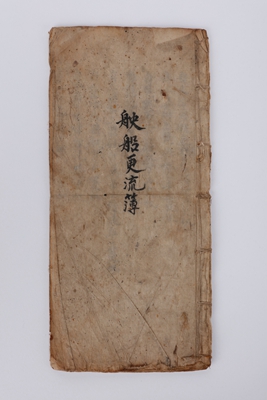 舦船更流簿